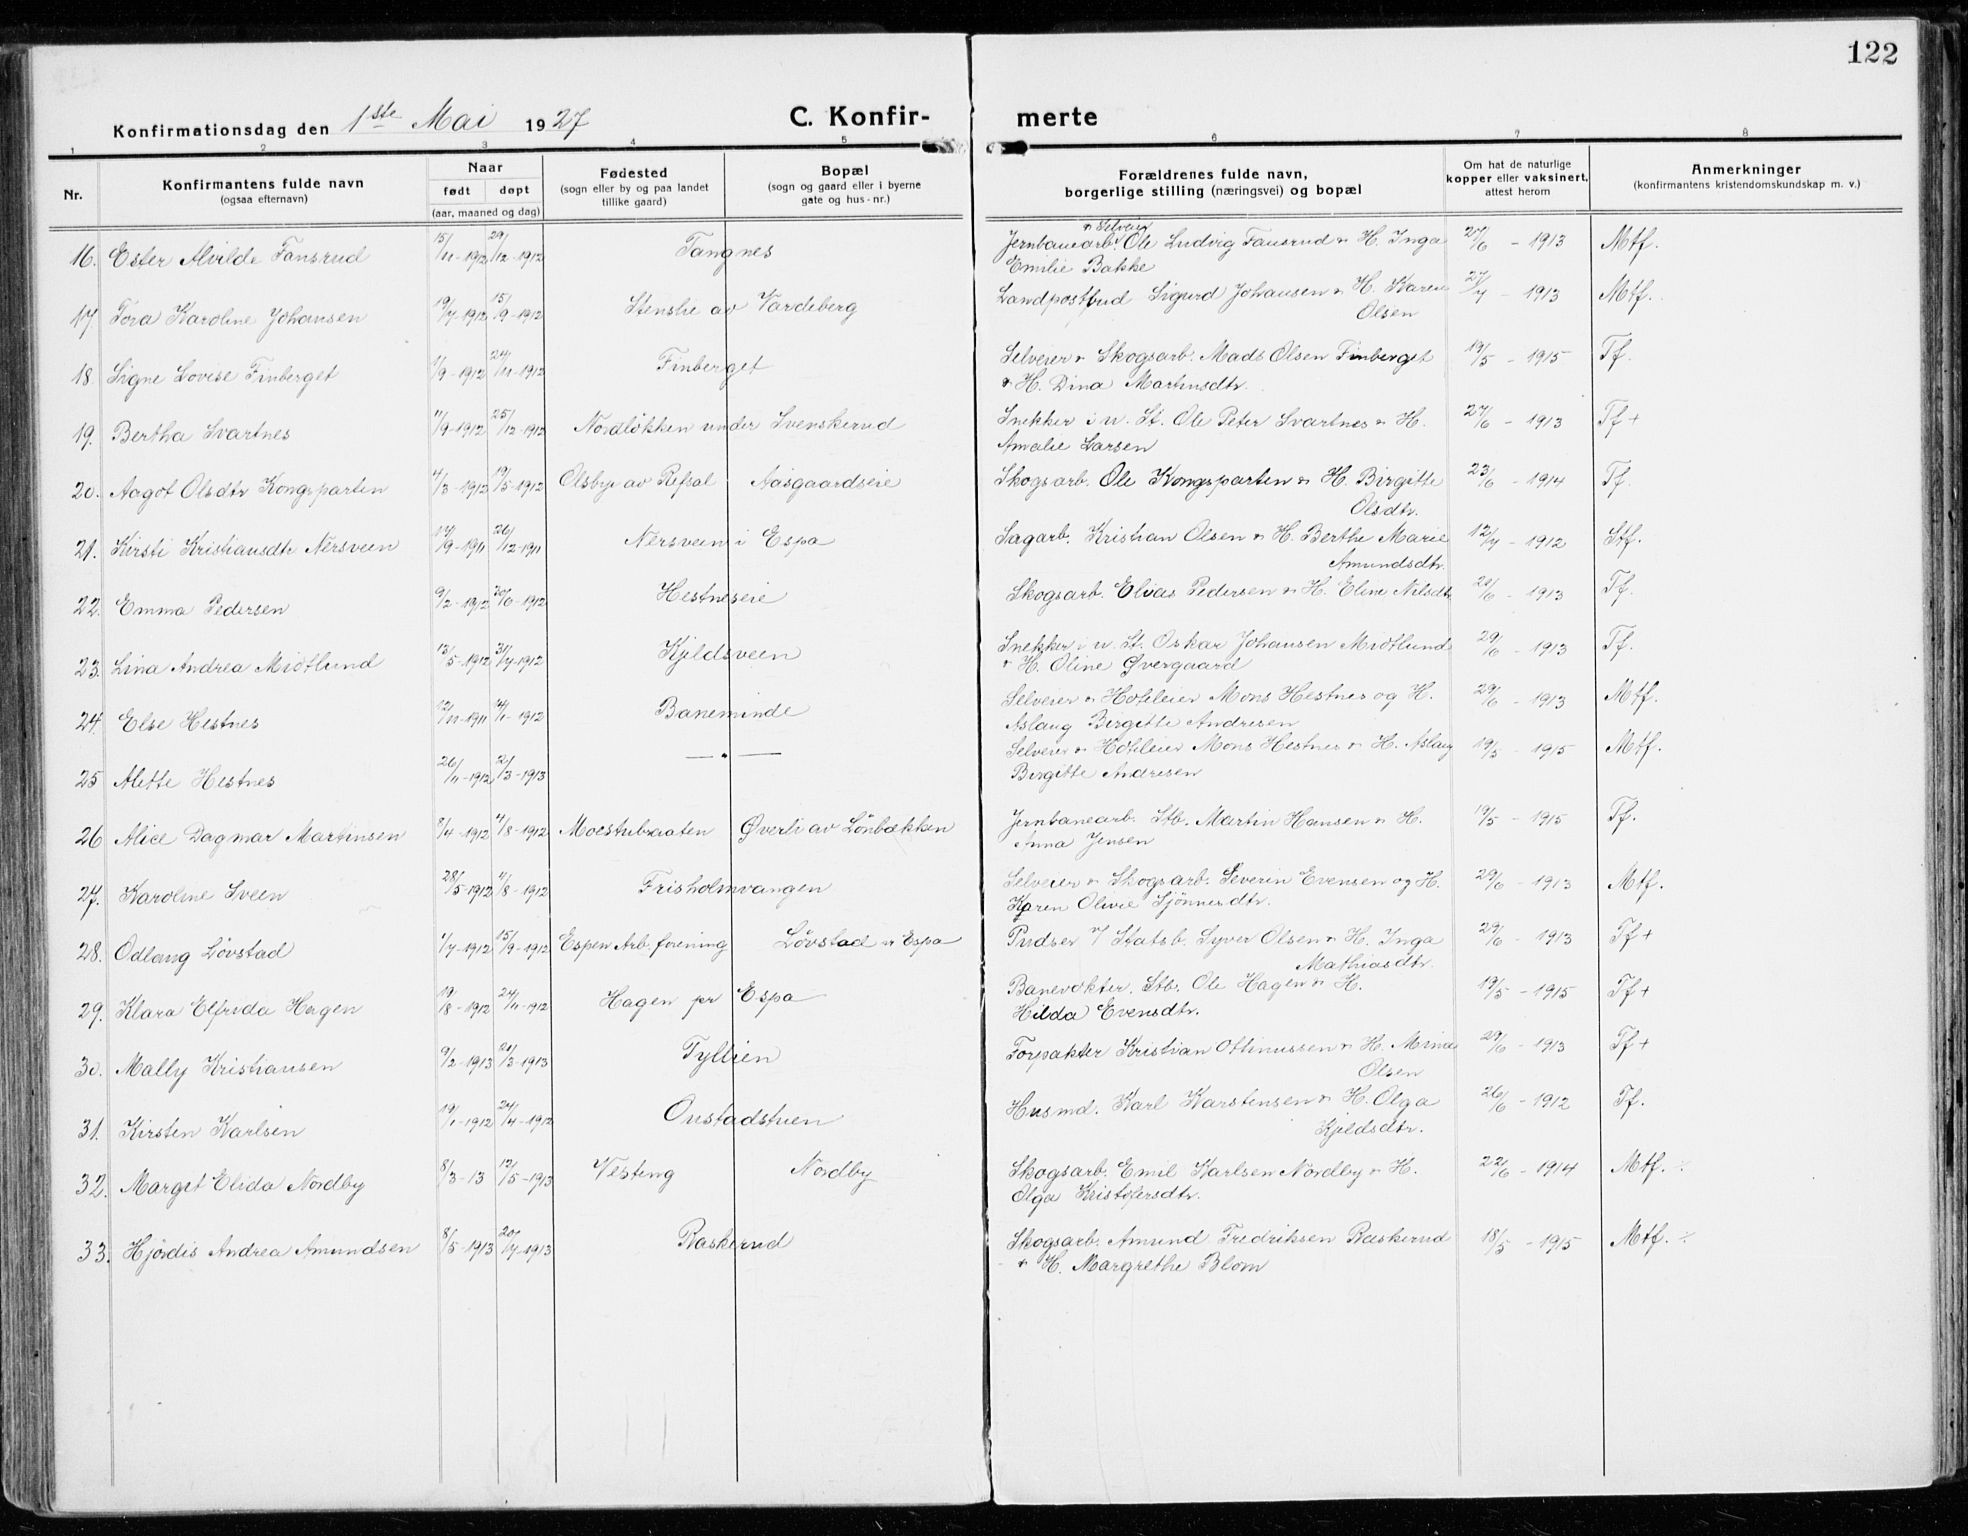 122
Konfirmationsdag den 1ste Mai 1927 C. Konfir- merte
1 2 3 4 5 6 7 8
Nr. Konfirmantens fulde navn (ogsaa efternavn) Naar født døpt (aar, maaned og dag) Fødested (sogn eller by og paa landet tillike gaard) Bopæl (sogn og gaard eller i byerne gate og hus-nr.) Forældrenes fulde navn, borgerlige stilling (næringsvei) og bopæl Om hat de naturlige kopper eller vaksinert, attest herom Anmerkninger (konfirmantens kristendomskundskap m. v.)
16. Ester Alvilde Fansrud 15/11-1912 29/12-1912 Tangnes Jernbanearb. & Selveier Ole Ludvig Fansrud & H. Inga 27/6 - 1913 Mtf.
Emilie Bakke
17. Tora Karoline Johansen 19/7-1912 15/9-1912 Stenslie av Vardeberg Landpostbud Sigurd Johansen & H. Karen 27/7 - 1913 Mtf.
Olsen
18. Signe Lovise Finberget 1/9-1912 24/11-1912 Finberget Selveier & Skogsarb. Mads Olsen Finberget 19/5 - 1915 Tf.
& H. Dina Martinsdtr.
19. Bertha Svartnes 11/9-1912 25/12-1912 Nordløkken under Svenskerud Snekker i u. St. Ole Peter Svartnes & H. 27/6 - 1913 Tf +
Amalie Larsen
20. Aagot Olsdtr Kongsparten 4/3-1912 19/5-1912 Olsbye av Refsal Aasgaardseie Skogsarb. Ole Kongsparten & H. Birgitte 23/6 - 1914 Tf.
Olsdtr.
21. Kirsti Kristiansdtr Nersveen 14/9-1911 26/12-1911 Nersveen i Espa Sagarb. Kristian Olsen & H. Berthe Marie 12/7 - 1912 Stf.
Amundsdtr.
22. Emma Pedersen 9/2-1912 30/6-1912 Hestneseie Skogsarb. Elias Pedersen & H. Eline Nilsdtr 21/6 - 1913 Tf.
23. Lina Andrea Midtlund 13/5-1912 31/7-1912 Kjeldsveen Snekker i u. St. Oskar Johansen Midtlund 29/6 - 1913 Tf.
& H. Oline Øvergaard
24. Else Hestnes 12/11-1911 14/1-1912 Baneminde Selveier & Hoteleier Mons Hestnes og H. 29/6 - 1913 Mtf.
Aslaug Birgitte Andresen
25 Alette Hestnes 26/11-1912 21/3-1913 — " — Selveier & Hoteleier Mons Hestnes & H. Aslaug 19/5 - 1915 Mtf.
Birgitte Andresen
26 Alice Dagmar Martinsen 8/4-1912 4/8-1912 Moestubraaten Øverli av Lønbækken Jernbanearb. Stb. Martin Hansen & H. 19/5 - 1915 Tf.
Anna Jensen
27. Karoline Sveen 28/5-1912 4/8-1912 Frisholmvangen Selveier & Skogsarb. Severin Evensen og H. 29/6 - 1913 Mtf.
Karen Olivie Sjønnesdtr.
28. Odlaug Løvstad 1/7-1912 15/9-1912 Espen Arb. forening Løvstad Espa Pudser v/ Statsb. Syver Olsen & H. Inga 29/6 - 1913 Tf +
Mathiasdtr.
29. Klara Elfrida Hagen 19/8-1912 24/11-1912 Hagen pr Espa Banevokter. Stb. Ole Hagen & H. 19/5 - 1915 Tf +
Hilda Evensdtr.
30. Mally Kristiansen 9/2-1913 21/3-1913 Tyllien Forpakter Kristian Ottinussen & H. Mina 29/6 - 1913 Tf +
Olsen
31. Kirsten Karlsen 19/1-1912 24/4-1912 Onstadstuen Husmd. Karl Karstensen & H. Olga 26/6 - 1912 Tf.
Kjeldsdtr.
32. Margit Elida Nordby 8/3-13 12/5-1913 Vesteng Nordby Skogsarb. Emil Karlsen Nordby & H. 22/6 - 1914 Mtf. ÷
Olga Kristofersdtr.
33. Hjørdis Andrea Amundsen 8/5-1913 20/7-1913 Raskerud Skogsarb. Amund Fredriksen Raskerud 18/5 - 1915 Mtf. ÷
& H. Margrethe Blom